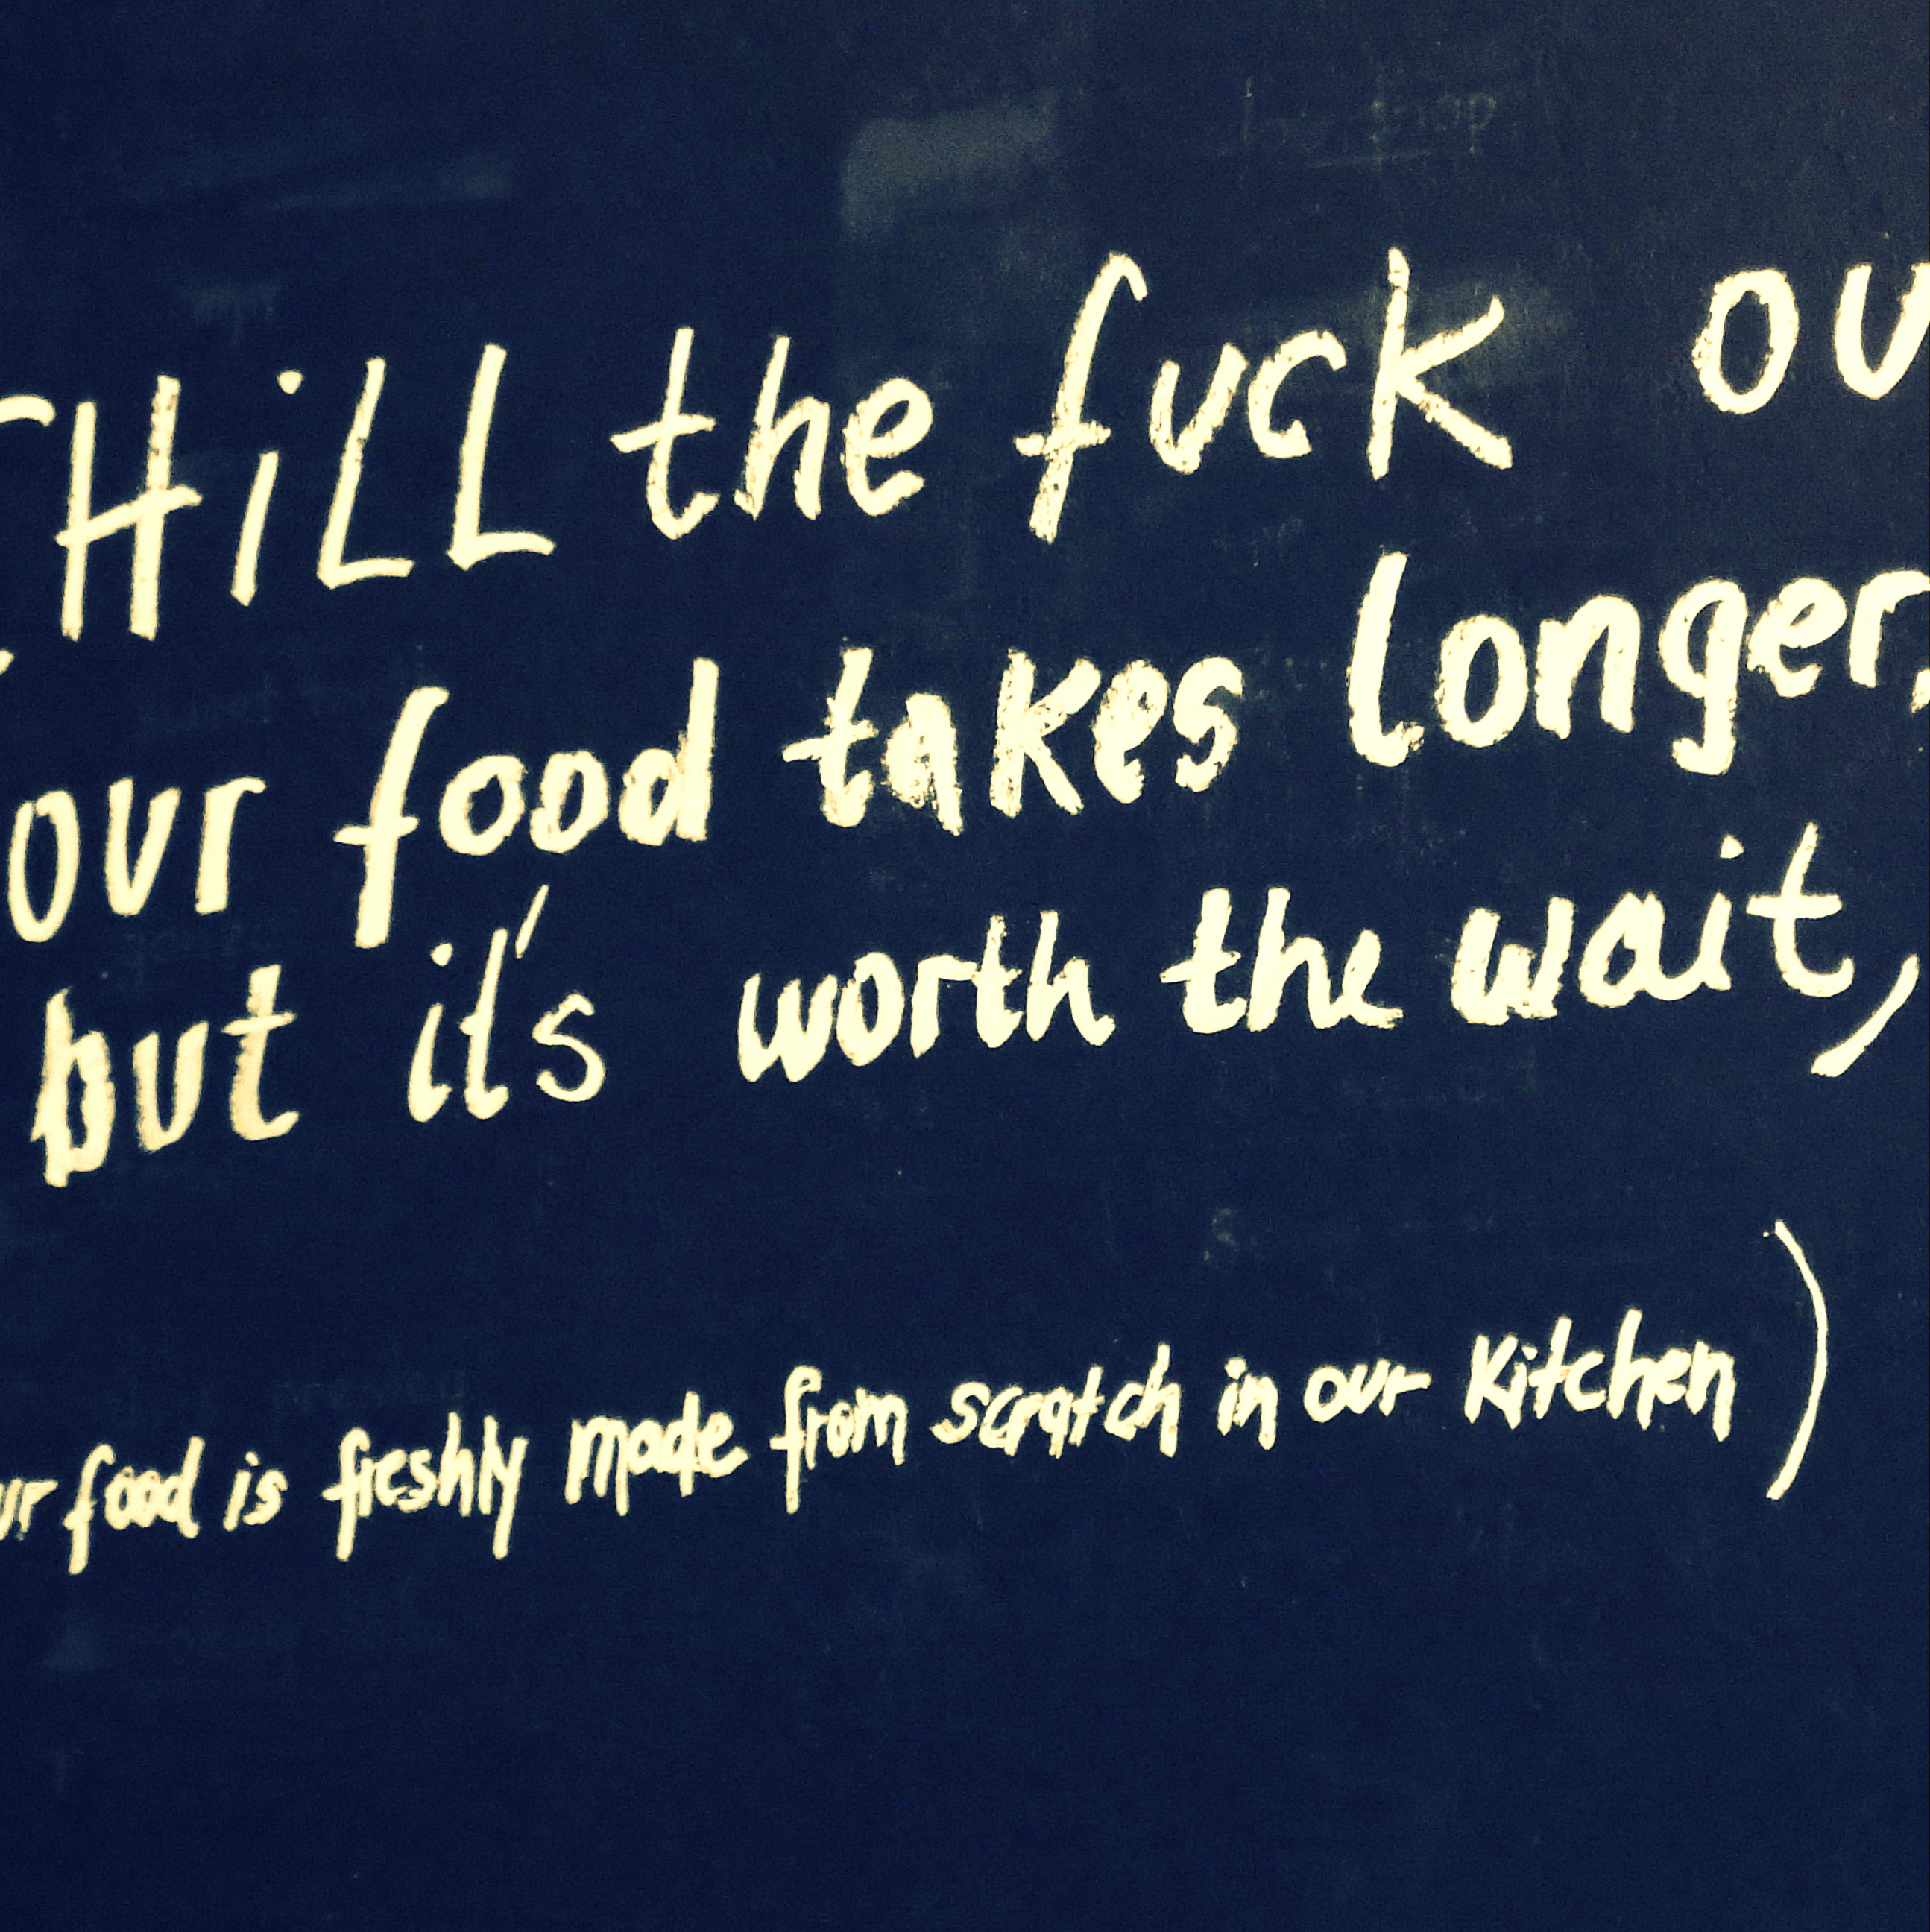 CHiLL the fuck ou
our food takes longer,
but it's worth the wait,
ur food is freshly made from scratch in our Kitchen)